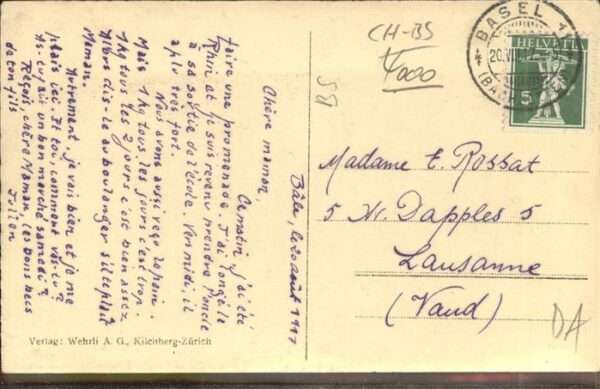 Bâle, le 20 août 1917
Chère maman,
Ce matin j'ai été
faire une promenade. J'ai longé le
Rhin et je suis revenu prendre l'oncle
à sa sortie de l'école. Vers midi, il
a plu très fort.
Nous avons aussi reçu le bon.
Mais 1 kg tous les jours c'est trop.
1 kg tous les 2 jours c'est bien assez
Alors dis-le au boulanger s'il te plaît
Maman.
Autrement, je vais bien et je me
plais ici. Et toi, comment vas-tu?
As-tu fait un bon marché samedi?
Reçois, chère Maman, les bons becs
de ton fils
Julien
Verlag: Wehrli A. G., Kilchberg-Zürich
CH-BS
BASEL
HELVETIA
5
Madame E. Rossat
5 Av. Dapples 5
Lausanne
(Vaud)
DA